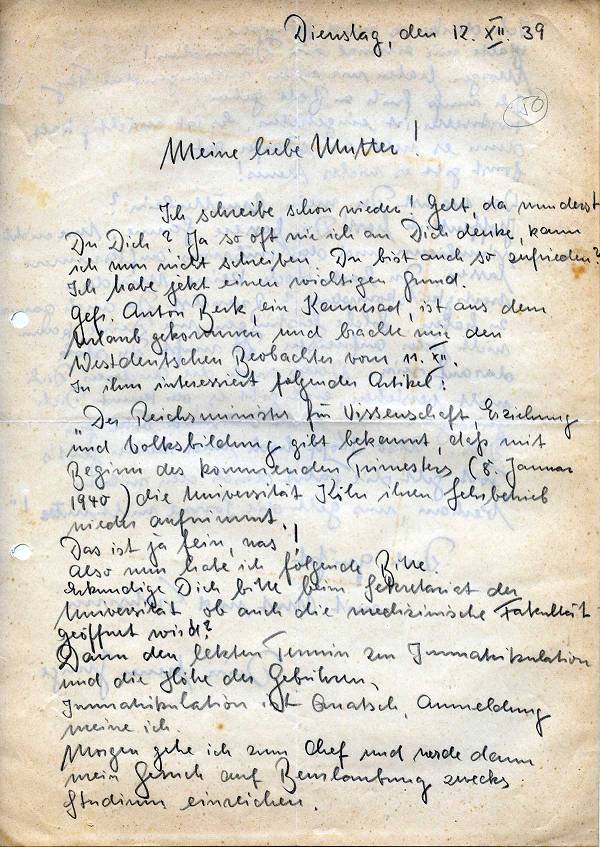 Dienstag, den 12. XII. 39
50
Meine liebe Mutter!
Ich schreibe schon wieder! Gelt, da wunderst
Du Dich? Ja so oft wie ich an Dich denke, kann
ich nun nicht schreiben. Du bist auch so zufrieden?
Ich habe jetzt einen wichtigen Grund.
Gefr. Anton Berk, ein Kamerad, ist aus dem
Urlaub gekommen und brachte mir den
Westdeutschen Beobachter vom 11. XII.
In ihm interessiert folgender Artikel:
"Der Reichsminister für Wissenschaft, Erziehung
und Volksbildung gibt bekannt, daß mit
Beginn des kommenden Trimesters (8. Januar
1940) die Universität Köln ihren Lehrbetrieb
wieder aufnimmt."
Das ist ja fein, was!
Also nun habe ich folgende Bitte.
Erkundige Dich bitte beim Sekretariat der
Universität ob auch die medizinische Fakultät
geöffnet wird?
Dann den letzten Termin zur Immatrikulation
und die Höhe der Gebühren,
Immatrikulation ist Quatsch, Anmeldung
meine ich.
Morgen gehe ich zum Chef und werde dann
mein Gesuch auf Beurlaubung zwecks
Studium einreichen.